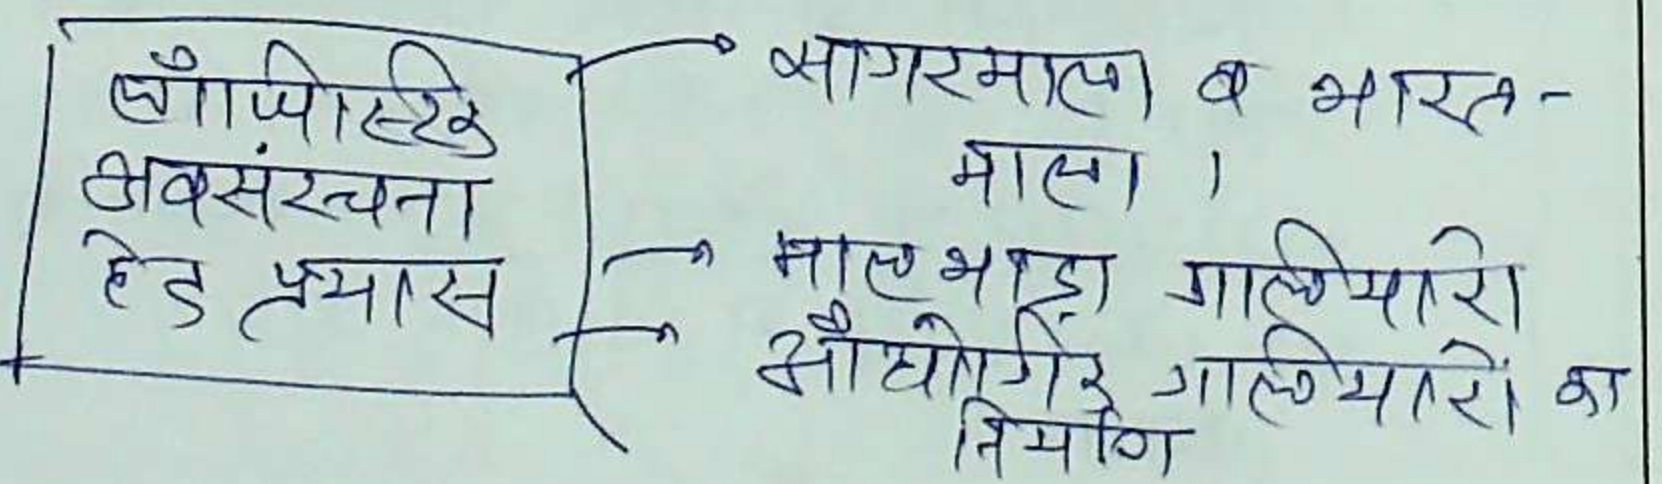 लॉजिस्टिक
अवसंरचना
हेतु प्रयास
सागरमाला व भारत-
माला ।
मालभाड़ा गलियारा
औद्योगिक गलियारों का
निर्माण